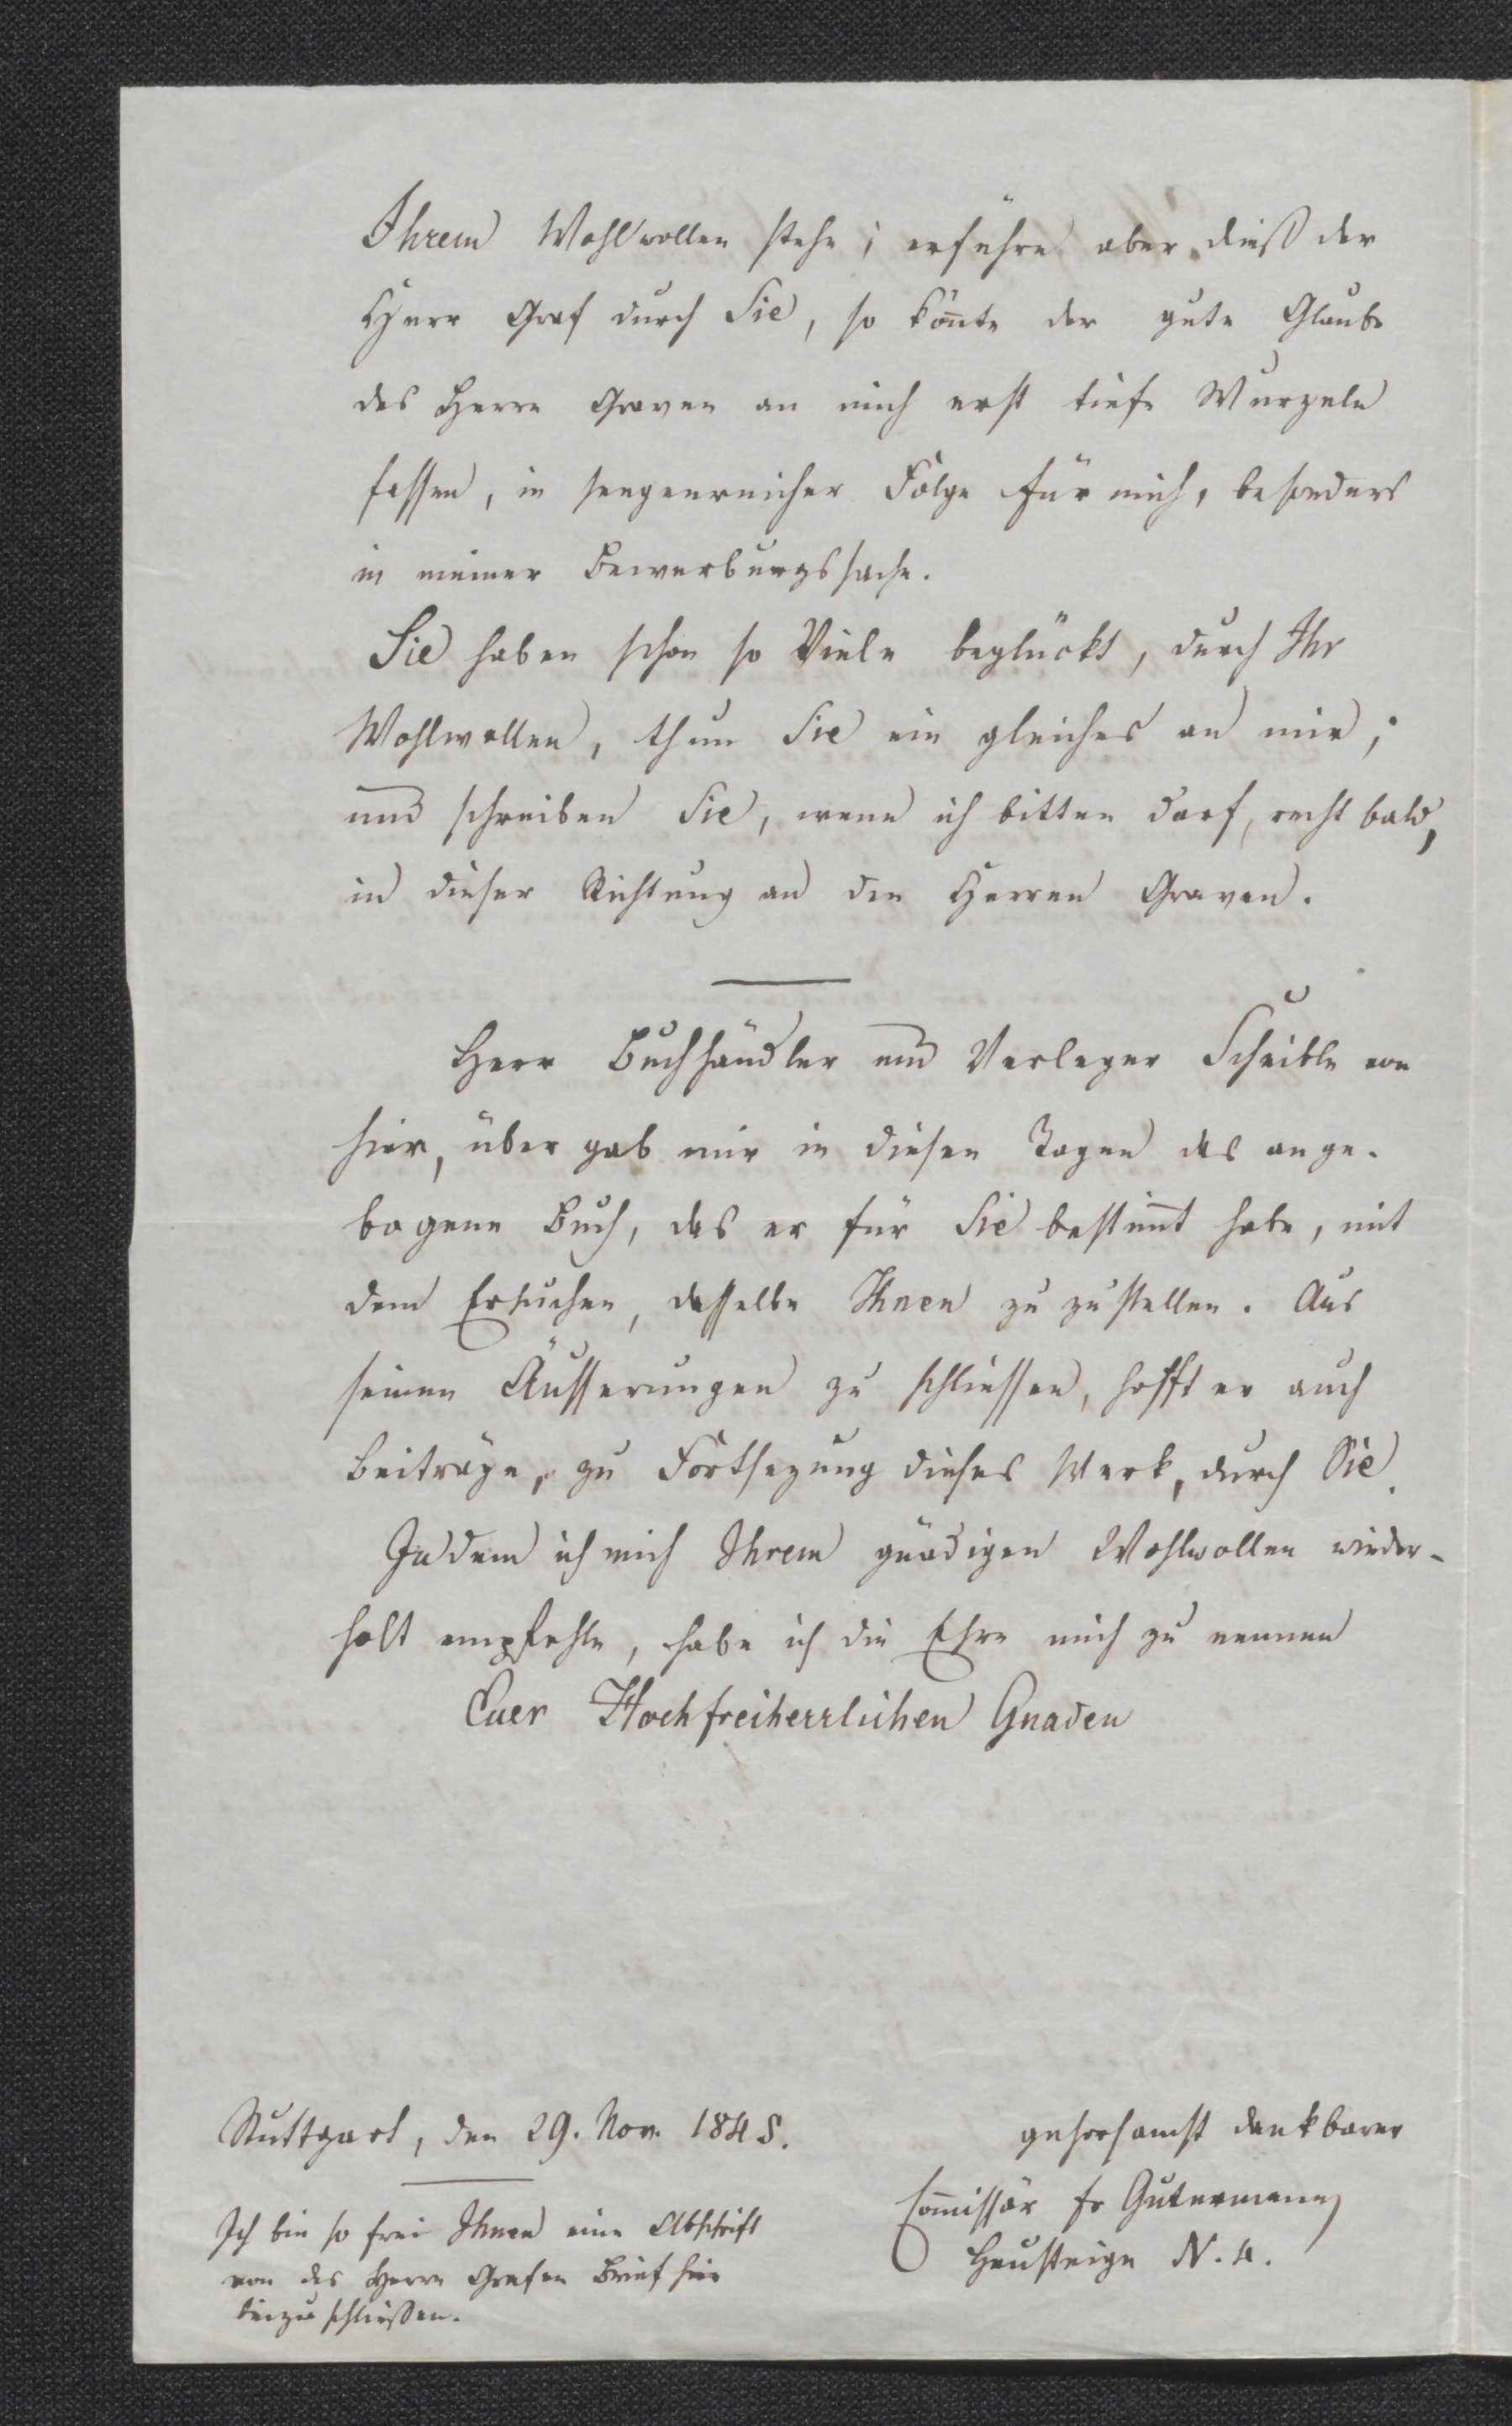 Ihrem Wohlwollen stehe; erführe aber dieß der
Herr Graf durch Sie, so könnte der gute Glaube
des Herrn Graven an mich erst tiefe Wurzeln
fassen, in seegenreicher Folge für mich, besonders
in meiner Bewerbungssache.
Sie haben schon so Viele beglückt, durch Ihr
Wohlwollen, thun Sie ein gleiches an mir;
und schreiben Sie, wenn ich bitten darf, recht bald,
in dieser Richtung an den Herren Graven.
Herr Buchhändler und Verleger Scheible von
hier, über gab mir in diesen Tagen das ange-
bogene Buch, das er für Sie bestimmt habe, mit
dem Ersuchen, dasselbe Ihnen zu zustellen. Aus
seinen Äusserungen zu schliessen, hofft er auch
Beiträge, zu Fortsezung dieses Werk, durch Sie.
Indem ich mich Ihrem gnädigen Wohlwollen wieder-
holt empfehle, habe ich die Ehre mich zu nennen
Euer Hochfreiherrlichen Gnaden
Stuttgart, den 29. Nov. 1848.
gehorsamst dankbarer
Commissär fr Gutermann
Heusteige N. 4.
Ich bin so frei Ihnen eine Abschrift
von des Herrn Grafen Brief hier
beizuschließen.